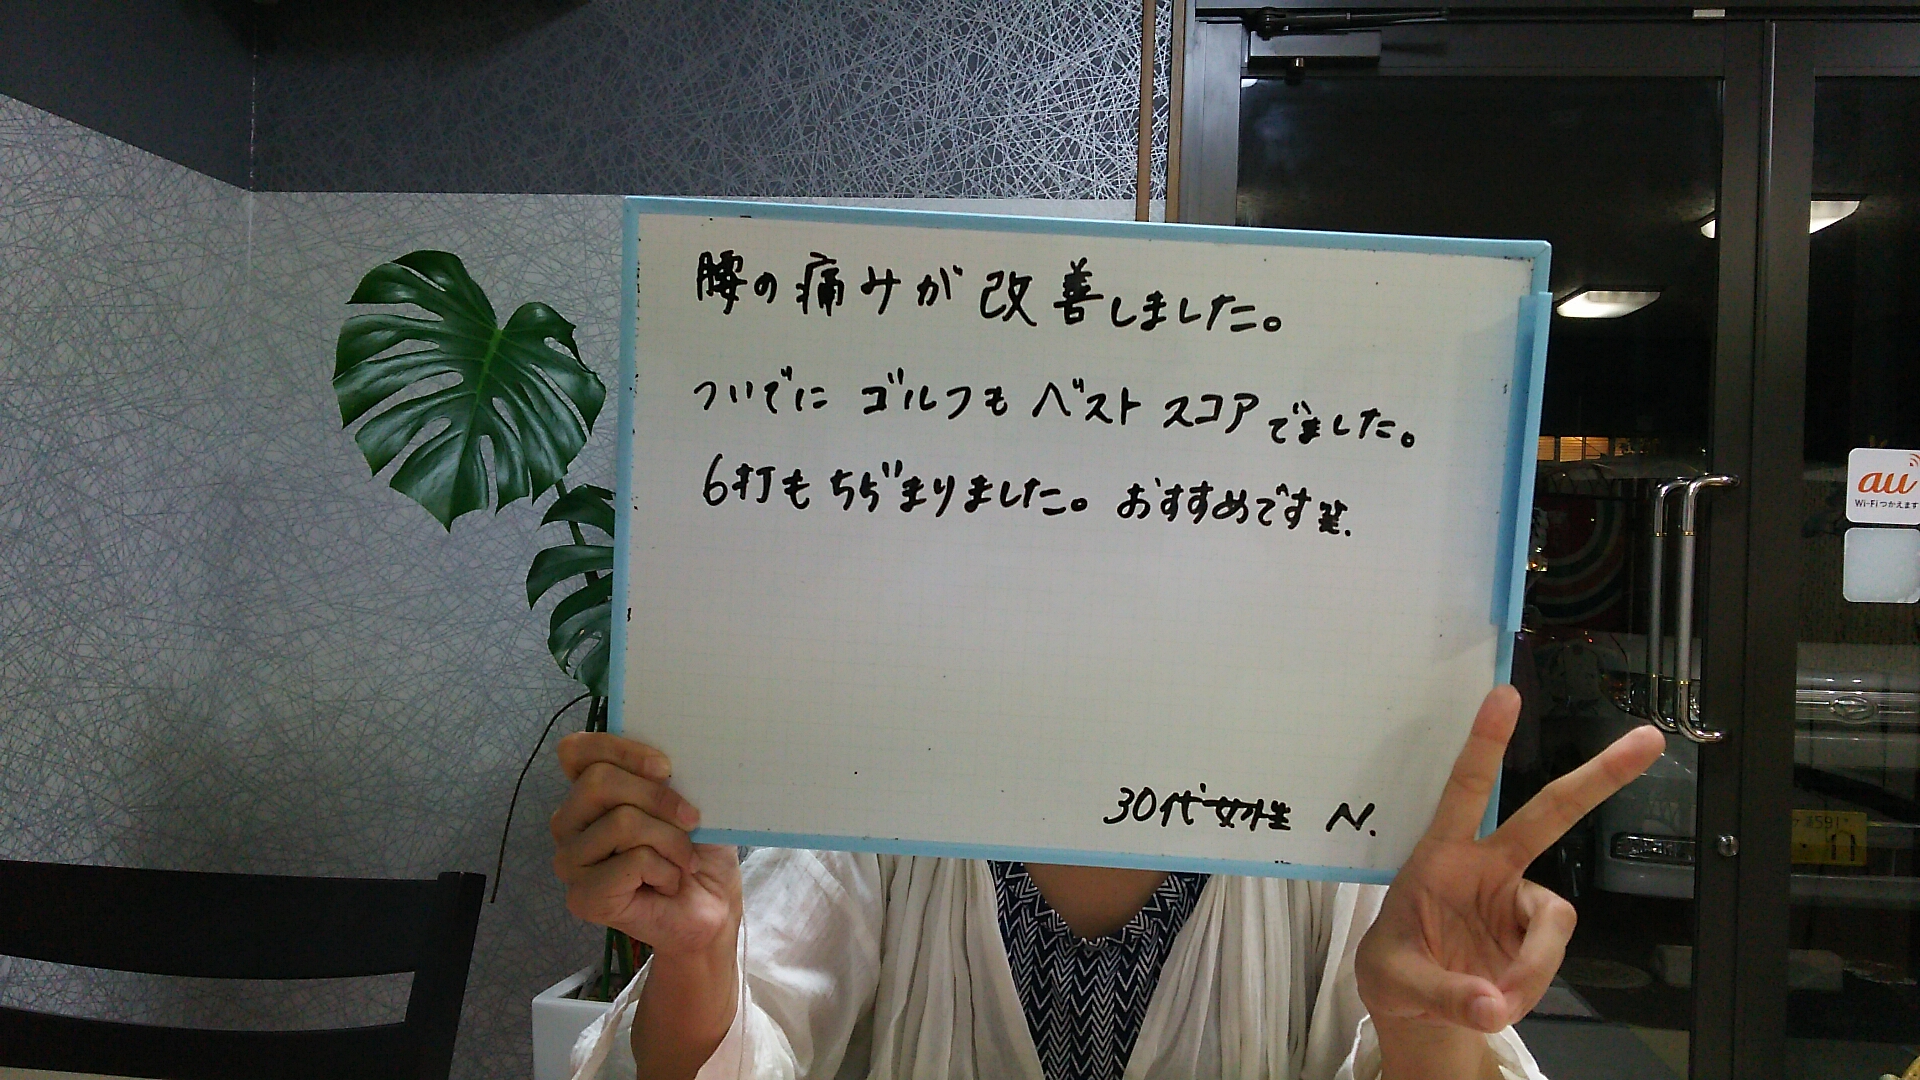 腰の痛みが改善しました。
ついでにゴルフもベストスコアでました。
6打もちぢまりました。おすすめです笑.
30代女性 N.
au
Wi-Fiつかえます
591